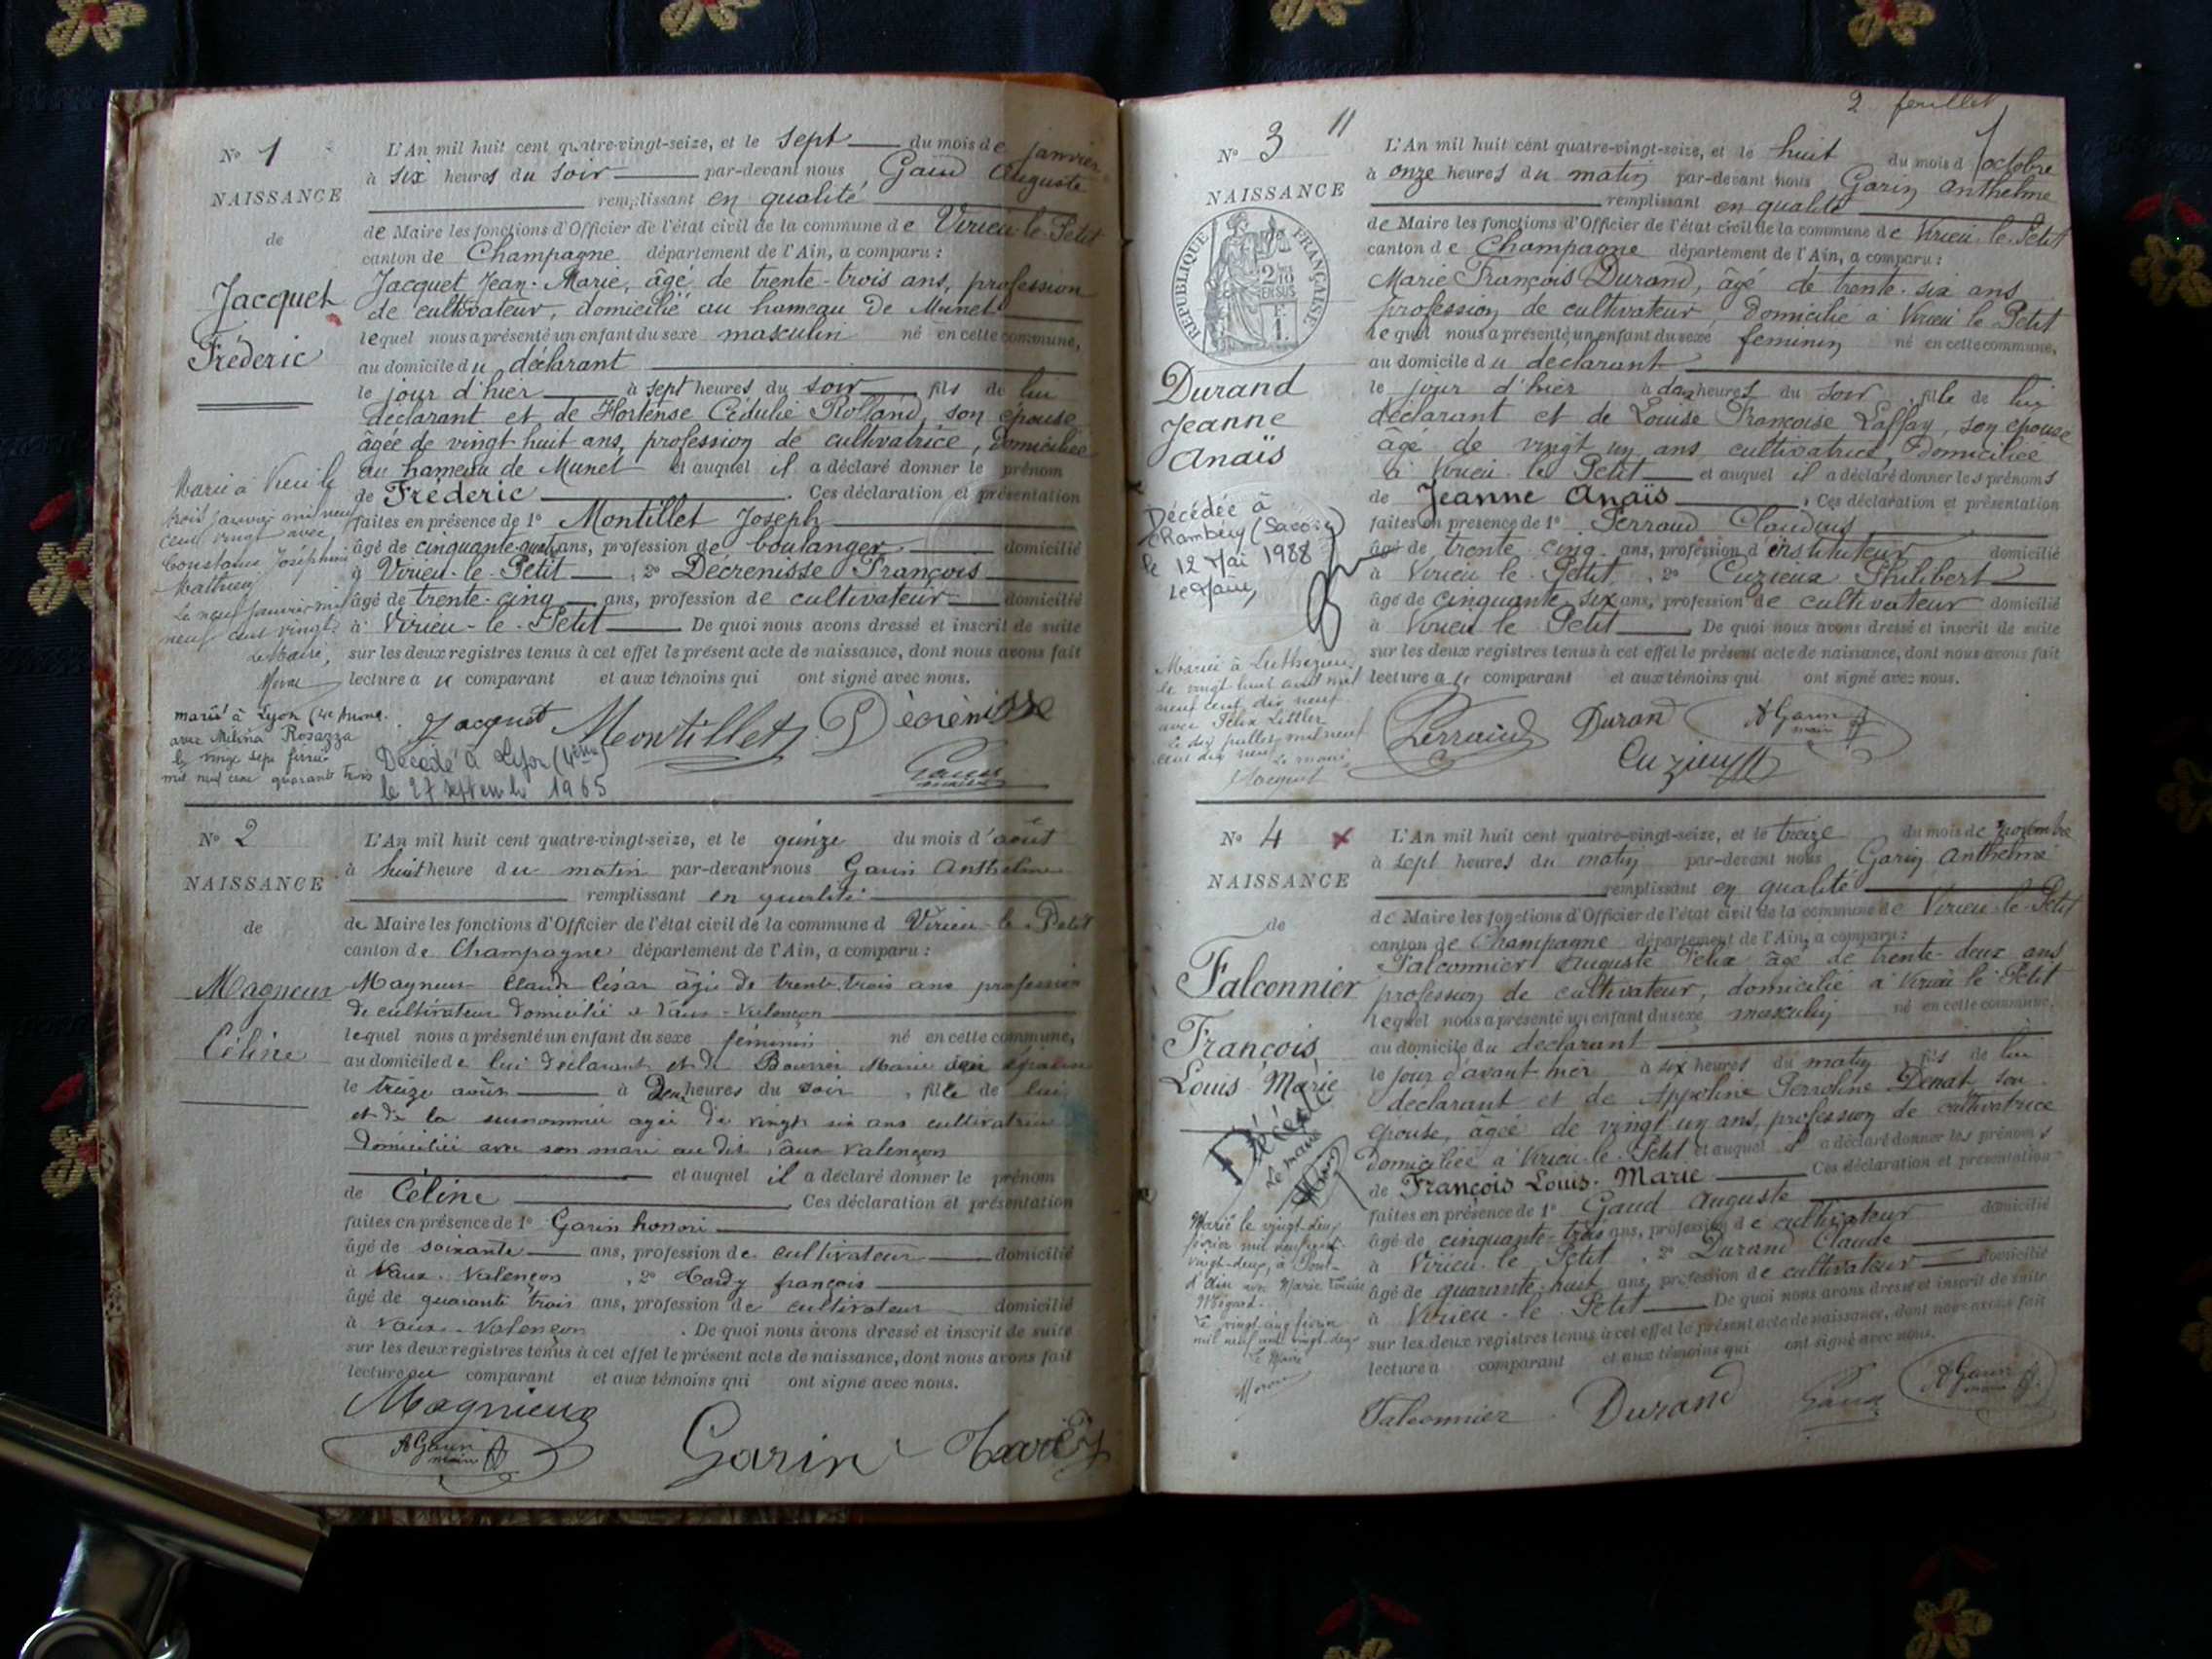 N° 1
NAISSANCE
de
Jacquet
Fréderic
L'An mil huit cent quatre-vingt-seize, et le sept du mois de janvier
à six heures du soir par-devant nous Gaud Auguste
remplissant en qualité
de Maire les fonctions d'Officier de l'état civil de la commune de Virieu-le-Petit
canton de Champagne département de l'Ain, a comparu :
Jacquet Jean-Marie, âgé de trente-trois ans, profession
de cultivateur, domicilié au hameau de Munet
lequel nous a présenté un enfant du sexe masculin né en cette commune,
au domicile du déclarant
le jour d'hier à sept heures du soir fils de lui
déclarant et de Hortense Cédulie Rolland, son épouse
âgée de vingt huit ans, profession de cultivatrice, domiciliée
au hameau de Munet et auquel il a déclaré donner le prénom
de Fréderic . Ces déclaration et présentation
faites en présence de 1° Montillet Joseph
âgé de cinquante-quatre ans, profession de boulanger domicilié
à Virieu-le-Petit , 2° Décrenisse François
âgé de trente-cinq ans, profession de cultivateur domicilié
à Virieu-le-Petit De quoi nous avons dressé et inscrit de suite
sur les deux registres tenus à cet effet le présent acte de naissance, dont nous avons fait
lecture au comparant et aux témoins qui ont signé avec nous.
Marié à Virieu le
trois janvier mil neuf
cent vingt avec
Constance Joséphine
Mathieu
Le neuf janvier mil
neuf cent vingt.
Le Maire,
marié à Lyon (4e
avec Milina Rosazza
le vingt sept février
mil neuf cent quarante trois
Jacquet Montillet Décrenisse
Décédé à Lyon (4ème)
le 27 septembre 1965
N° 2
NAISSANCE
de
Magneux
Céline
L'An mil huit cent quatre-vingt-seize, et le quinze du mois d'août
à huit heure du matin par-devant nous Garin Anthelme
remplissant en qualité
de Maire les fonctions d'Officier de l'état civil de la commune d Virieu-le-Petit
canton de Champagne département de l'Ain, a comparu :
Magneux Claude César âgé de trente trois ans profession
de cultivateur domicilié à Vaux-Valençon
lequel nous a présenté un enfant du sexe féminin né en cette commune,
au domicile de lui déclarant et de Marie
le treize août à Deux heures du soir , fille de lui
et de la surnommée agée de vingt six ans cultivatrice
domiciliée avec son mari au dit Vaux Valençon
et auquel il a déclaré donner le prénom
de Céline Ces déclaration et présentation
faites en présence de 1° Garin honoré
âgé de soixante ans, profession de cultivateur domicilié
à Vaux-Valençon , 2° Hardy françois
âgé de quarante trois ans, profession de cultivateur domicilié
à Vaux-Valençon . De quoi nous avons dressé et inscrit de suite
sur les deux registres tenus à cet effet le présent acte de naissance, dont nous avons fait
lecture au comparant et aux témoins qui ont signé avec nous.
Magnieux
A Garin
maire
Garin Hardy
2 feuillet
N° 3 11
NAISSANCE
RÉPUBLIQUE FRANÇAISE
2/10 EN SUS
Durand
Jeanne
Anaïs
L'An mil huit cent quatre-vingt-seize, et le huit du mois d'octobre
à onze heures du matin par-devant nous Garin Anthelme
remplissant en qualité
de Maire les fonctions d'Officier de l'état civil de la commune de Virieu-le-Petit
canton de Champagne département de l'Ain, a comparu :
Marie François Durand, âgé de trente-six ans
profession de cultivateur, domicilié à Virieu le Petit
lequel nous a présenté un enfant du sexe feminin né en cette commune,
au domicile du déclarant
le jour d'hier à heures du soir , fille de lui
déclarant et de Louise Françoise Laffay, son épouse
âgé de vingt un ans cultivatrice, domiciliée
à Virieu le Petit et auquel il a déclaré donner les prénoms
de Jeanne Anaïs . Ces déclaration et présentation
faites en présence de 1° Perraud Claudius
âgé de trente cinq ans, profession d'instituteur domicilié
à Virieu le Petit , 2° Cuzieux Philibert
âgé de cinquante six ans, profession de cultivateur domicilié
à Virieu le Petit De quoi nous avons dressé et inscrit de suite
sur les deux registres tenus à cet effet le présent acte de naissance, dont nous avons fait
lecture au comparant et aux témoins qui ont signé avec nous.
Décédée à
Chambéry (Savoie)
le 12 Mai 1988
Le Maire,
Mariée à
le vingt huit avril mil
neuf cent dix neuf
avec Félix Littler
Le dix juillet mil neuf
cent dix neuf
Le maire,
Jacquet
Perraud Durand A Garin
maire
Cuzieux
N° 4 x
NAISSANCE
de
Falconnier
François
Louis-Marie
L'An mil huit cent quatre-vingt-seize, et le treize du mois de novembre
à sept heures du matin par-devant nous Garin Anthelme
remplissant en qualité
de Maire les fonctions d'Officier de l'état civil de la commune de Virieu-le-Petit
canton de Champagne département de l'Ain, a comparu :
Falconnier Auguste Félix âgé de trente-deux ans
profession de cultivateur, domicilié à Virieu le Petit
lequel nous a présenté un enfant du sexe masculin né en cette commune,
au domicile du déclarant
le jour d'avant hier à six heures du matin , fils de lui
déclarant et de Appoline Perroline Denat son
épouse, âgée de vingt un ans, profession de cultivatrice
domiciliée à Virieu-le-Petit et auquel il a déclaré donner les prénoms
de François Louis-Marie Ces déclaration et présentation
faites en présence de 1° Gaud Auguste
âgé de cinquante-trois ans, profession de cultivateur domicilié
à Virieu-le-Petit , 2° Durand Claude
âgé de quarante-huit ans, profession de cultivateur domicilié
à Virieu-le-Petit De quoi nous avons dressé et inscrit de suite
sur les deux registres tenus à cet effet le présent acte de naissance, dont nous avons fait
lecture a comparant et aux témoins qui ont signé avec nous.
Décédé
Le maire
Marié le vingt-deux
février mil neuf cent
vingt-deux, à Pont-
d'Ain avec Marie Louise
Mignard.
Le vingt cinq février
mil neuf cent vingt-deux
Le Maire
Falconnier Durand Gaud A Garin
maire